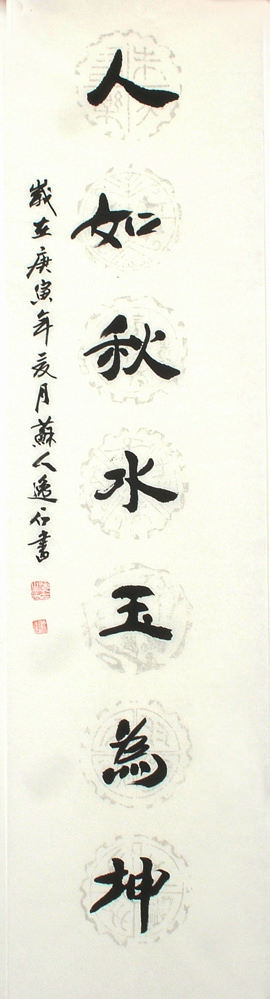 人如秋水玉為坤
歲在庚寅年夏月蘇人逸石書